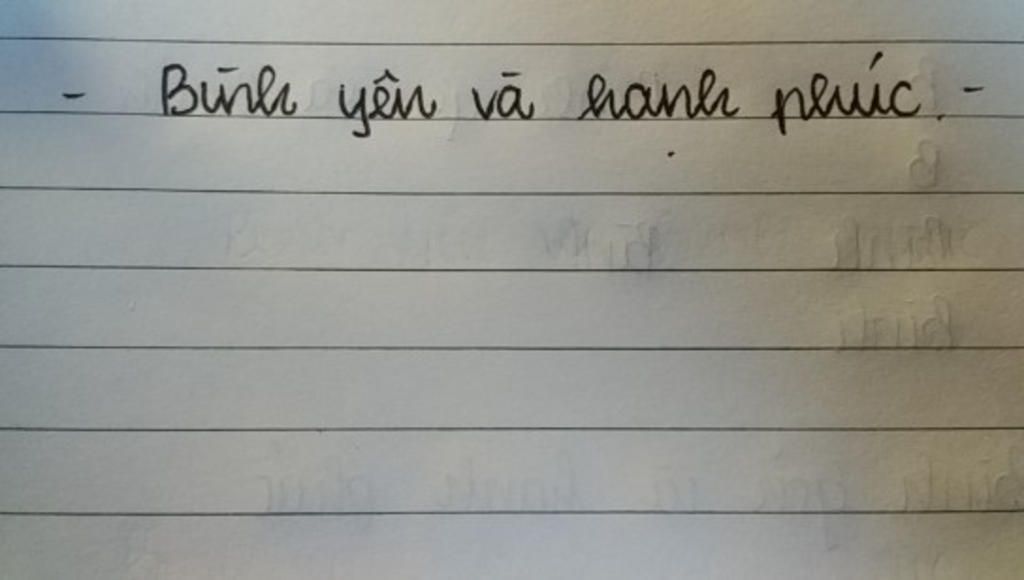 - Bình yên và hạnh phúc. -